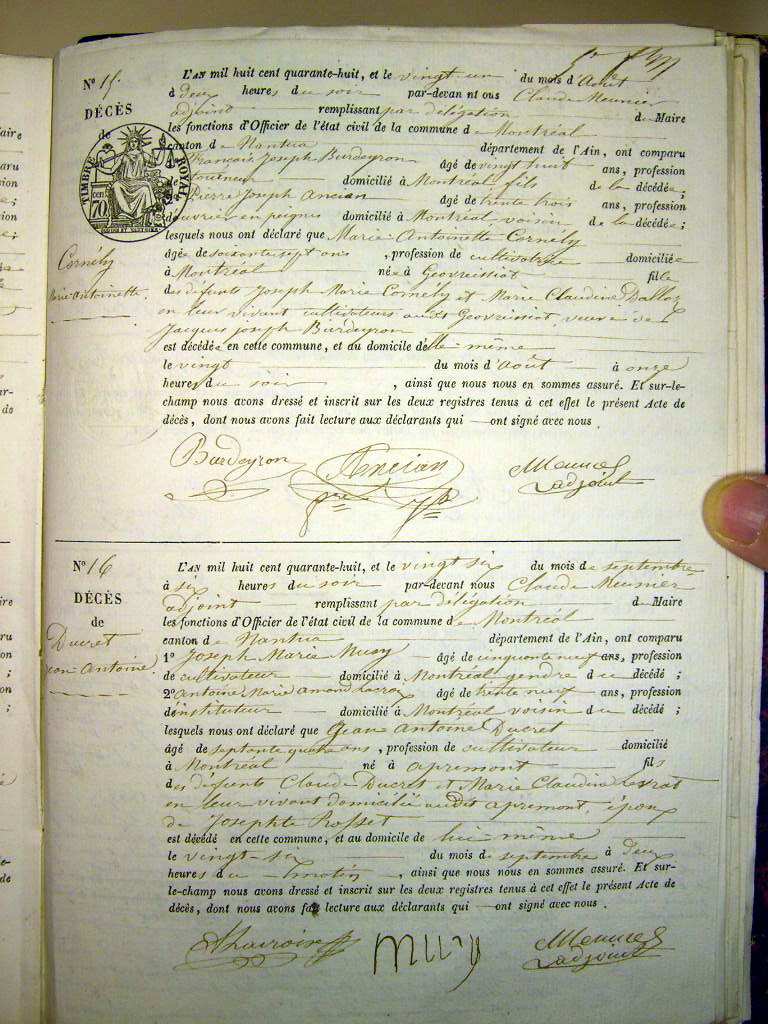 N° 15.
DÉCÈS
de
TIMBRE ROYAL
70
Cornély
Marie Antoinette.
L'AN mil huit cent quarante-huit, et le vingt un du mois d'Août
à deux heures du soir par-devant nous Claude Meunier
adjoint remplissant par délégation de Maire
les fonctions d'Officier de l'état civil de la commune de Montréal
canton de Nantua département de l'Ain, ont comparu
François Joseph Burdeyron âgé de vingt huit ans, profession
de tourneur domicilié à Montréal fils de la décédée;
Pierre Joseph Ancian âgé de trente trois ans, profession
d'ouvrier en peignes domicilié à Montréal voisin de la décédée;
lesquels nous ont déclaré que Marie Antoinette Cornély
âgée de soixante sept ans, profession de cultivatrice domiciliée
à Montréal née à Geovreissiat fille
des défunts Joseph Marie Cornély et Marie Claudine Dalloz
en leur vivant cultivateurs audit Geovreissiat, veuve de
Jacques joseph Burdeyron
est décédée en cette commune, et au domicile d'elle même
le vingt du mois d'août à onze
heures du soir, ainsi que nous nous en sommes assuré. Et sur-le-
champ nous avons dressé et inscrit sur les deux registres tenus à cet effet le présent Acte de
décès, dont nous avons fait lecture aux déclarants qui ont signé avec nous.
Burdeyron Ancian Meunier
adjoint
N° 16
DÉCÈS
de
Ducret
Jean Antoine
L'AN mil huit cent quarante-huit, et le vingt six du mois de septembre
à six heures du soir par-devant nous Claude Meunier
adjoint remplissant par délégation de Maire
les fonctions d'Officier de l'état civil de la commune de Montréal
canton de Nantua département de l'Ain, ont comparu
1° Joseph Marie Musy âgé de cinquante neuf ans, profession
de cultivateur domicilié à Montréal gendre du décédé;
2° Antoine Marie amand âgé de trente neuf ans, profession
d'instituteur domicilié à Montréal voisin du décédé;
lesquels nous ont déclaré que Jean Antoine Ducret
âgé de septante quatre ans, profession de cultivateur domicilié
à Montréal né à apremont fils
des défunts Claude Ducret et Marie Claudine Levrat
en leur vivant domiciliés audit apremont, époux
de Josephte Rosset
est décédé en cette commune, et au domicile de lui même
le vingt-six du mois de septembre à deux
heures du matin, ainsi que nous nous en sommes assuré. Et sur-
le-champ nous avons dressé et inscrit sur les deux registres tenus à cet effet le présent Acte de
décès, dont nous avons fait lecture aux déclarants qui ont signé avec nous.
Meunier
adjoint